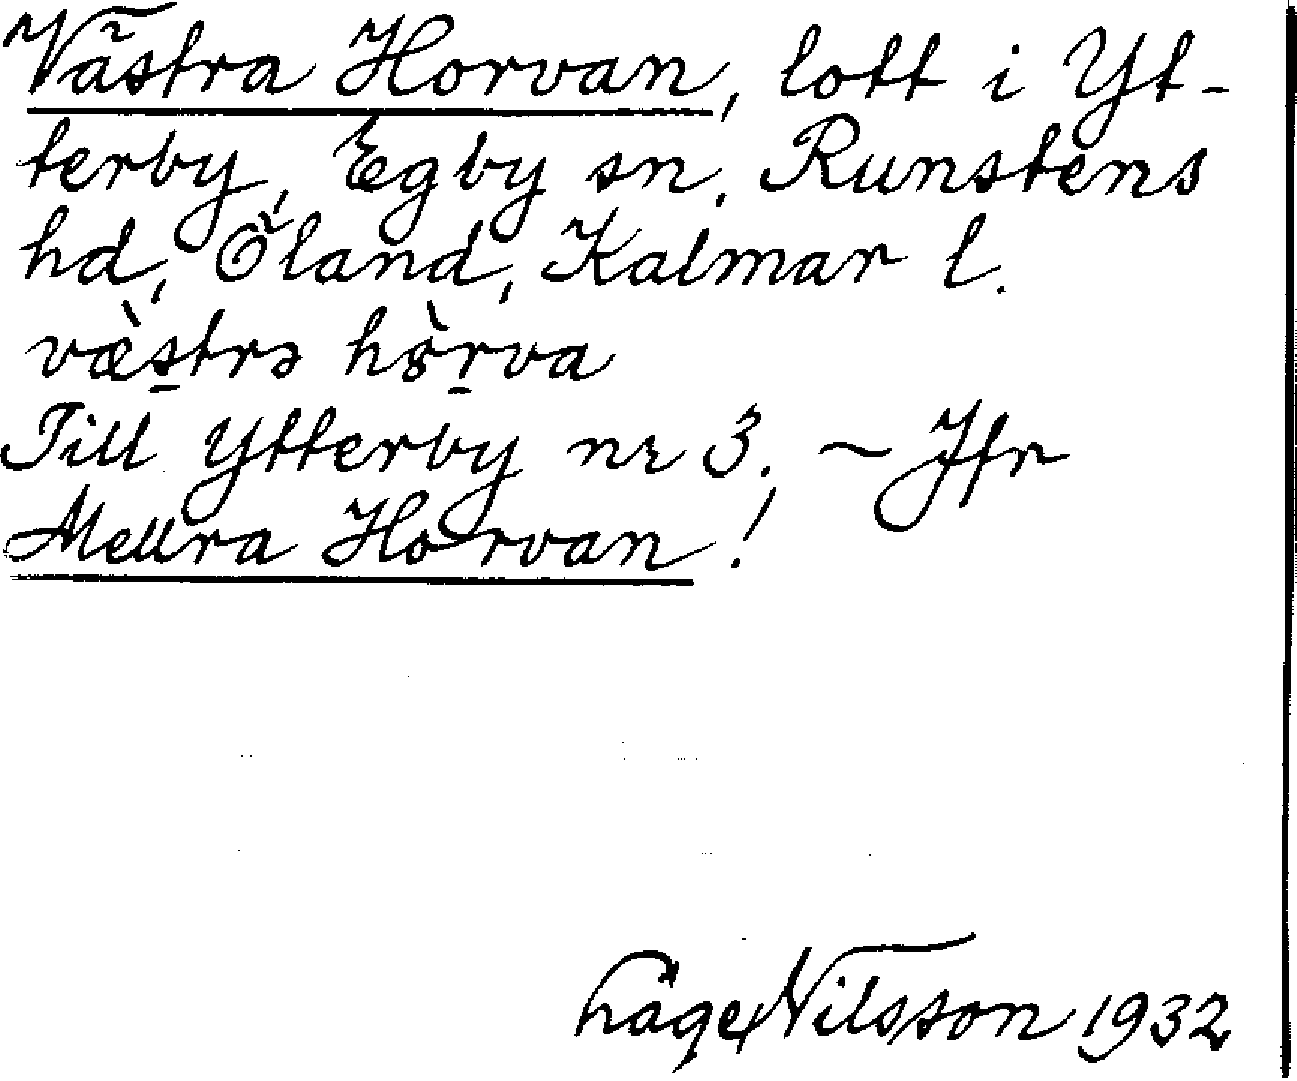 Västra Horvan, lott i Yt-
terby, Egby sn, Runstens
hd, Öland, Kalmar l.
væ̀s̠trə hɞ̀r̠va
Till Ytterby nr 3. – Jfr
Mellra Horvan!
Låge Nilsson 1932